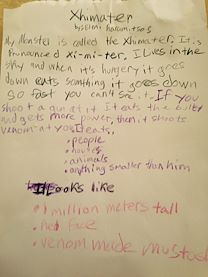 Xhimater
My Monster is called the Xhimater, It is
Pronounced Xi-mi-ter, I Lives in the
sky and when it's hungry it goes
down eats something it goes down
so fast you can't see it. If you
shoot a gun at it It eats the bullet
and gets more power, then it shoots
venom at you. It eats,
• people
• houses
• animals
• anything smaller than him
Looks like
• 1 million meters tall
• Red face
• venom made mustach